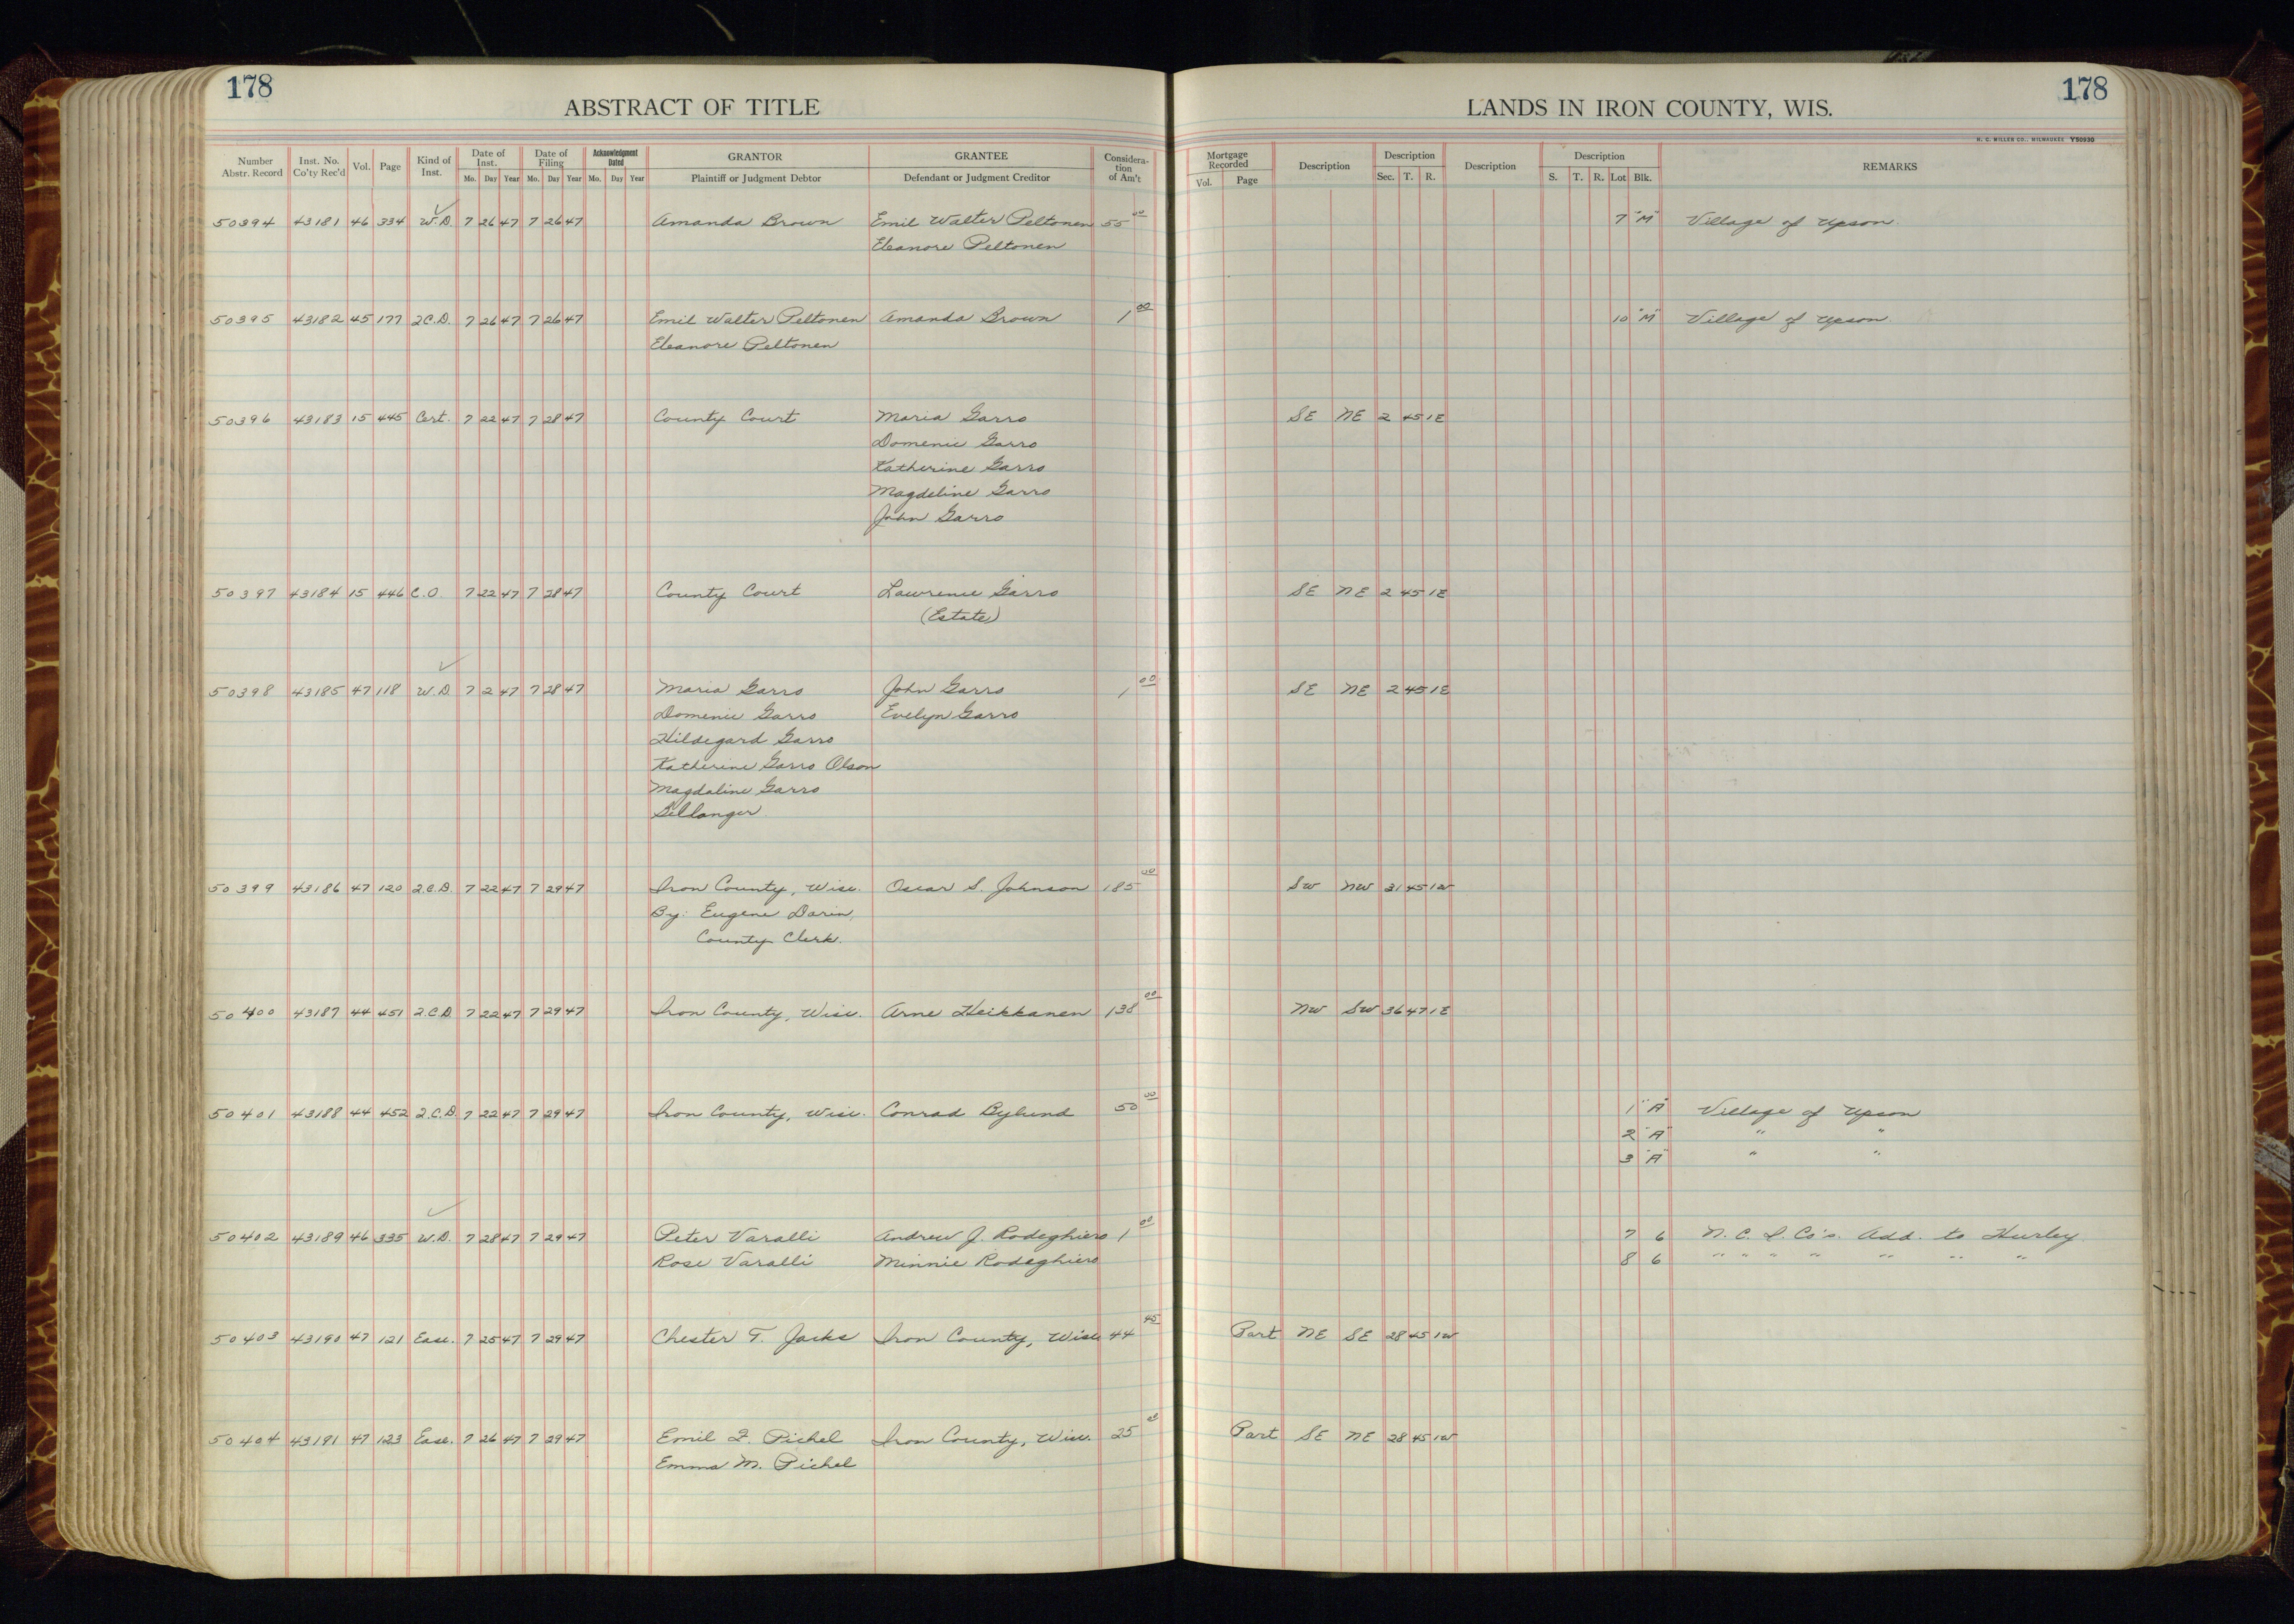 178
178
ABSTRACT OF TITLE
LANDS IN IRON COUNTY, WIS.
H. C. MILLER CO., MILWAUKEE Y50930
Number Abstr. Record | Inst. No. Co'ty Rec'd | Vol. | Page | Kind of Inst. | Date of Inst. Mo. Day Year | Date of Filing Mo. Day Year | Acknowledgment Dated Mo. Day Year | GRANTOR Plaintiff or Judgment Debtor | GRANTEE Defendant or Judgment Creditor | Considera-tion of Am't | Mortgage Recorded Vol. Page | Description | Description Sec. T. R. | Description | Description S. T. R. Lot Blk. | REMARKS
50394 43181 46 334 W.D. 7 26 47 7 26 47 Amanda Brown Emil Walter Peltonen 55 00 7 "M" Village of Upson
Eleanore Peltonen
50395 43182 45 177 2.C.D. 7 26 47 7 26 47 Emil Walter Peltonen Amanda Brown 1 00 10 "M" Village of Upson
Eleanore Peltonen
50396 43183 15 445 Cert. 7 22 47 7 28 47 County Court Maria Garro SE NE 2 45 1E
Domenic Garro
Katherine Garro
Magdeline Garro
John Garro
50397 43184 15 446 C.O. 7 22 47 7 28 47 County Court Lawrence Garro SE NE 2 45 1E
(Estate)
50398 43185 47 118 W.D. 7 2 47 7 28 47 Maria Garro John Garro 1 00 SE NE 2 45 1E
Domenic Garro Evelyn Garro
Hildegard Garro
Katherine Garro Olson
Magdaline Garro
Billanger
50399 43186 47 120 2.C.D. 7 22 47 7 29 47 Iron County, Wisc. Oscar S. Johnson 185 00 SW NW 31 45 1W
By: Eugene Darin,
County Clerk.
50400 43187 44 451 2.C.D. 7 22 47 7 29 47 Iron County, Wisc. Arne Heikkanen 138 00 NW SW 36 47 1E
50401 43188 44 452 2.C.D. 7 22 47 7 29 47 Iron County, Wisc. Conrad Bylund 50 00 1 "A" Village of Upson
2 "A" " "
3 "A" " "
50402 43189 46 335 W.D. 7 28 47 7 29 47 Peter Varalli Andrew J. Rodeghiero 1 00 7 6 N. C. I. Co's. Add. to Hurley
Rose Varalli Minnie Rodeghiero 8 6 " " " " " " "
50403 43190 47 121 Ease. 7 25 47 7 29 47 Chester T. Jacks Iron County, Wisc. 44 45 Part NE SE 28 45 1W
50404 43191 47 123 Ease. 7 26 47 7 29 47 Emil F. Pichel Iron County, Wisc. 25 00 Part SE NE 28 45 1W
Emma M. Pichel